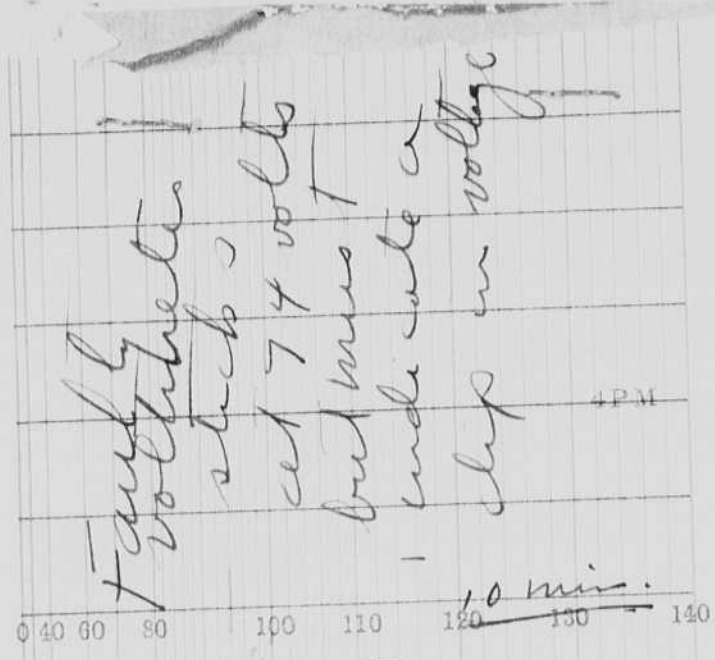 Faulty
voltmeter
sticks
at 74 volts
but must
indicate a
dip in voltage
4PM
10 min.
0 40 60 80 100 110 120 130 140